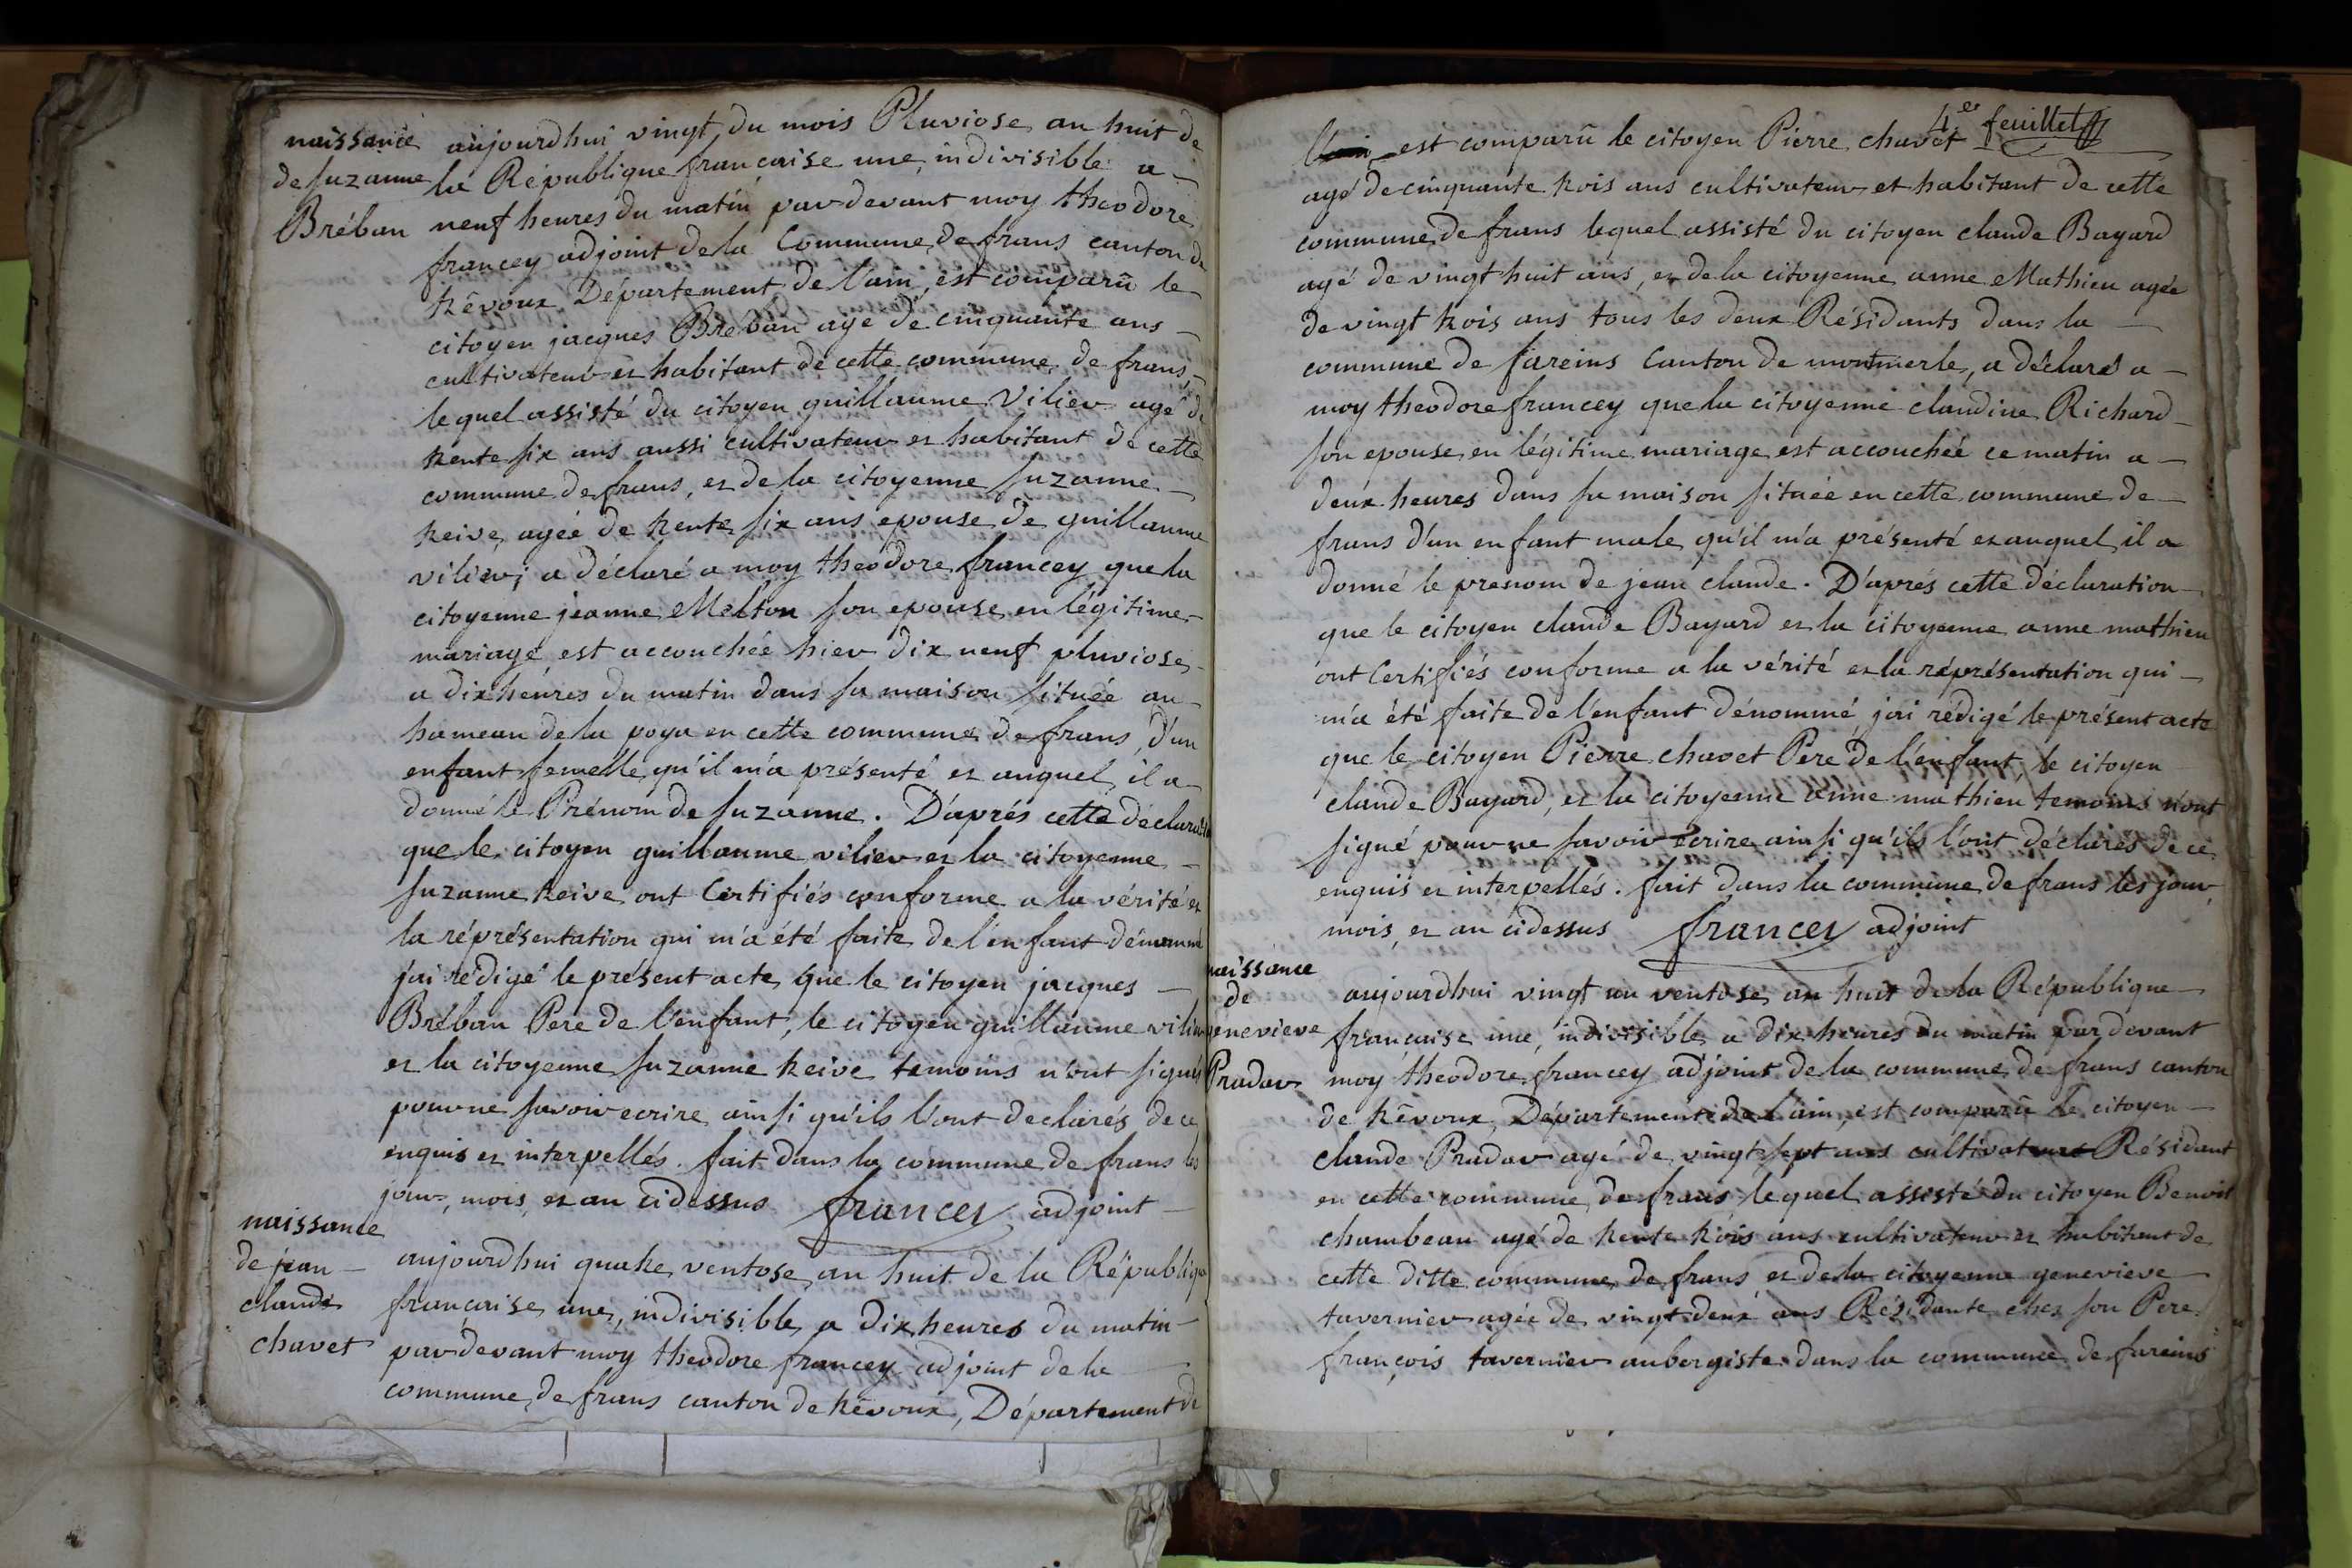 naissance
de suzanne
Bréban
aujourdhui vingt, du mois Pluviose, an huit de
la République française une, indivisible a
neuf heures du matin pardevant moy theodore
francey adjoint de la Commune de frans canton de
trévoux Département de l'ain, est comparû le
citoyen jacques Bréban agé de cinquante ans
cultivateur et habitant de cette commune de frans,
lequel assisté du citoyen guillaume Vilier agé de
trente six ans aussi cultivateur et habitant de cette
commune de frans, et de la citoyenne suzanne
treive, agée de trente six ans epouse de guillaume
vilier; a déclaré a moy theodore francey que la
citoyenne jeanne Melton son epouse en légitime
mariage, est accouchée hier dix neuf pluviose,
a dix heures du matin dans sa maison située au
hameau de la poya en cette commune de frans, d'un
enfant femelle, qu'il m'a présenté et auquel il a
donné le Prénom de suzanne. D'aprés cette déclaration
que le citoyen guillaume vilier et la citoyenne
suzanne treive ont Certifiés conforme a la vérité et
la réprésentation qui m'a été faite de l'enfant dénommé
j'ai rédigé le présent acte que le citoyen jacques
Bréban Pere de l'enfant, le citoyen guillaume vilier
et la citoyenne suzanne treive temoins n'ont signés
pour ne savoir ecrire ainsi qu'ils l'ont declarés de ce
enquis et interpellés. fait dans la commune de frans les
jour, mois, et an cidessus francey adjoint
naissance
de jean
claude
chavet
aujourdhui quatre ventose, an huit de la République
française une, indivisible a dix heures du matin
pardevant moy theodore francey adjoint de la
commune, de frans canton de trévoux, Département de
4.e feuillet
l'ain, est comparû le citoyen Pierre chavet
agé de cinquante trois ans cultivateur et habitant de cette
commune de frans lequel assisté du citoyen claude Bayard
agé de vingt huit ans, et de la citoyenne anne Mathieu agée
de vingt trois ans tous les deux Résidants dans la
commune de fareins Canton de montmerle, a déclaré a
moy theodore francey que la citoyenne claudine Richard
son epouse en légitime mariage est accouchée ce matin a
deux heures dans sa maison située en cette commune de
frans d'un enfant male qu'il m'a présenté et auquel il a
donné le prenom de jean claude. D'aprés cette déclaration
que le citoyen claude Bayard et la citoyenne anne mathieu
ont Certifiés conforme a la vérité et la réprésentation qui
m'a été faite de l'enfant dénommé j'ai rédigé le présent acte
que le citoyen Pierre chavet Pere de l'enfant, le citoyen
claude Bayard, et la citoyenne anne mathieu temoins n'ont
signé pour ne savoir ecrire ainsi qu'ils l'ont déclarés de ce
enquis et interpellés. fait dans la commune de frans les jour
mois, et an cidessus francey adjoint
naissance
de
genevieve
Pradar
aujourdhui vingt un ventose, an huit de la République
française une, indivisible, a dix heures du matin par devant
moy theodore francey adjoint de la commune de frans canton
de trévoux, Département de l'ain, est comparû le citoyen
claude Pradar agé de vingt sept ans cultivateur Résidant
en cette commune de frans, lequel assisté du citoyen Benoit
chambeau agé de trente trois ans cultivateur et habitant de
cette ditte commune, de frans et de la citoyenne genevieve
tavernier agée de vingt deux ans Résidante chez son Pere
françois tavernier aubergiste dans la commune de fareins